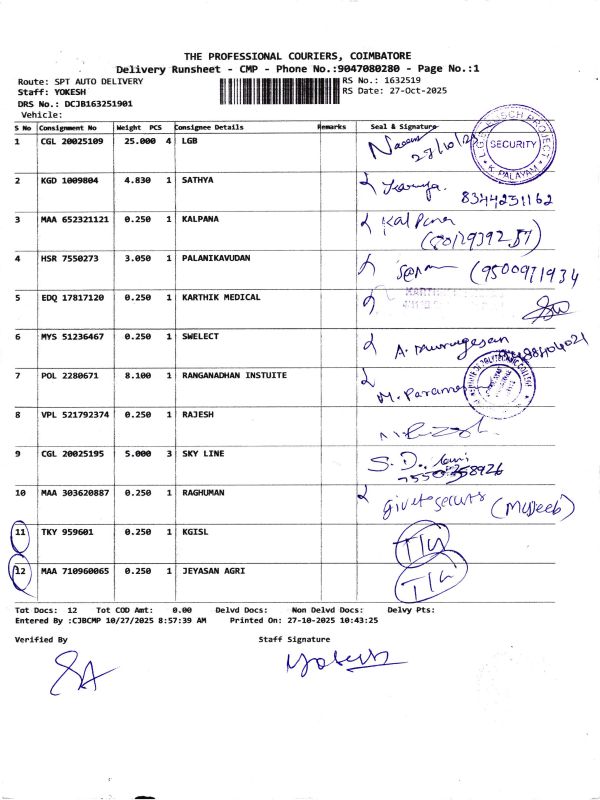 THE PROFESSIONAL COURIERS, COIMBATORE
Delivery Runsheet - CMP - Phone No.:9047080280 - Page No.:1
Route: SPT AUTO DELIVERY RS No.: 1632519
Staff: YOKESH RS Date: 27-Oct-2025
DRS No.: DCJB163251901
Vehicle:
S No Consignment No Weight PCS Consignee Details Remarks Seal & Signature
1 CGL 20025109 25.000 4 LGB 27/10/25
SECURITY
K. PALAYAM
2 KGD 1009804 4.830 1 SATHYA
8344231162
3 MAA 652321121 0.250 1 KALPANA Kalpana
4 HSR 7550273 3.050 1 PALANIKAVUDAN (9500971934
5 EDQ 17817120 0.250 1 KARTHIK MEDICAL
6 MYS 51236467 0.250 1 SWELECT A. Murugesan
7 POL 2280671 8.100 1 RANGANADHAN INSTUITE
8 VPL 521792374 0.250 1 RAJESH
9 CGL 20025195 5.000 3 SKY LINE S. D..
10 MAA 303620887 0.250 1 RAGHUMAN (Mujeeb)
11 TKY 959601 0.250 1 KGISL
12 MAA 710960065 0.250 1 JEYASAN AGRI
Tot Docs: 12 Tot COD Amt: 0.00 Delvd Docs: Non Delvd Docs: Delvy Pts:
Entered By :CJBCMP 10/27/2025 8:57:39 AM Printed On: 27-10-2025 10:43:25
Verified By Staff Signature